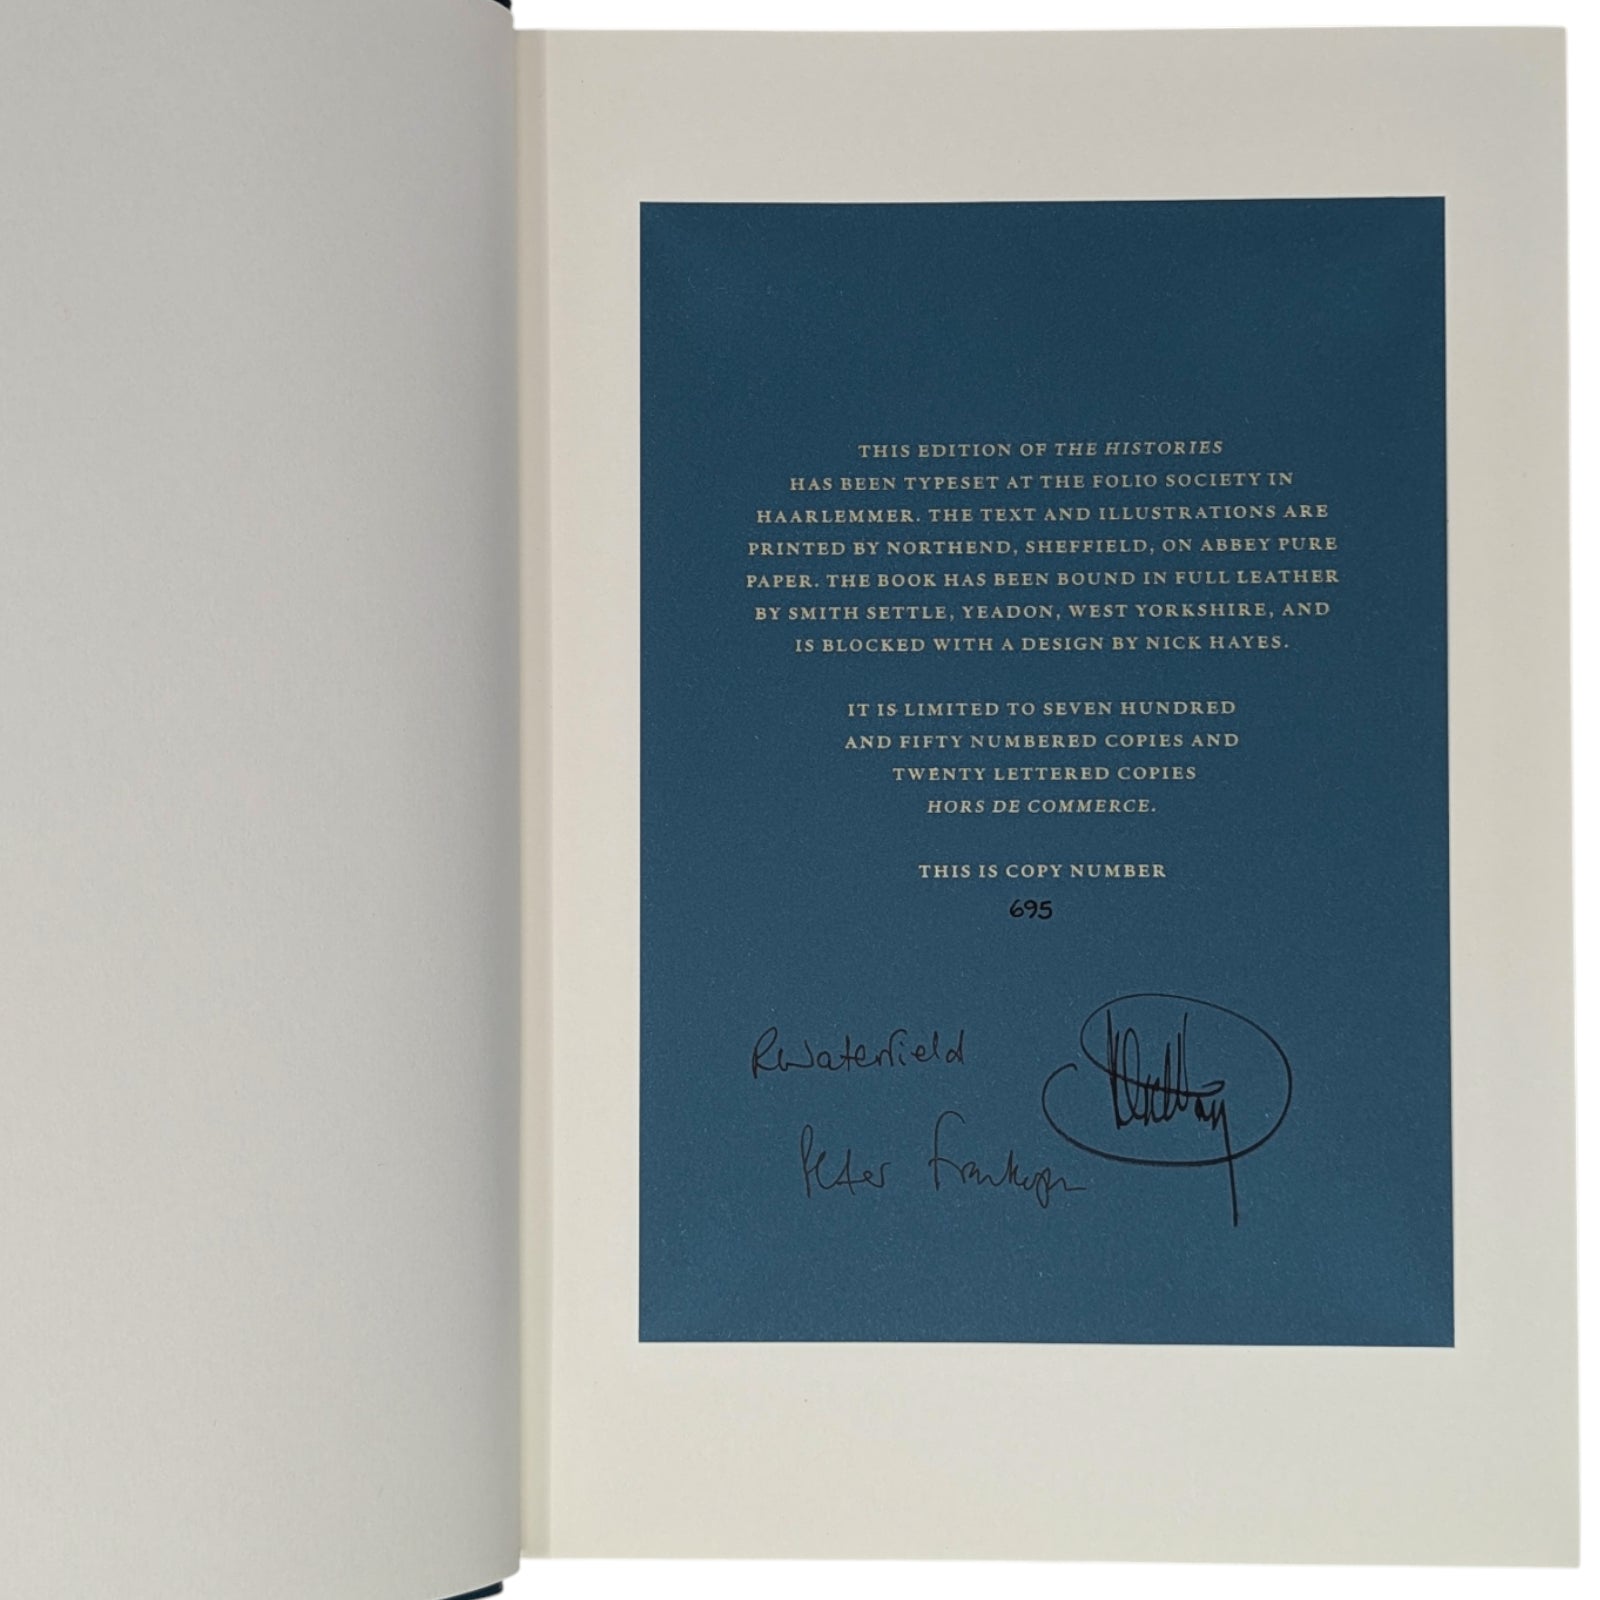 THIS EDITION OF THE HISTORIES
HAS BEEN TYPESET AT THE FOLIO SOCIETY IN
HAARLEMMER. THE TEXT AND ILLUSTRATIONS ARE
PRINTED BY NORTHEND, SHEFFIELD, ON ABBEY PURE
PAPER. THE BOOK HAS BEEN BOUND IN FULL LEATHER
BY SMITH SETTLE, YEADON, WEST YORKSHIRE, AND
IS BLOCKED WITH A DESIGN BY NICK HAYES.
IT IS LIMITED TO SEVEN HUNDRED
AND FIFTY NUMBERED COPIES AND
TWENTY LETTERED COPIES
HORS DE COMMERCE.
THIS IS COPY NUMBER
695
RWaterfield
Peter Frankopan